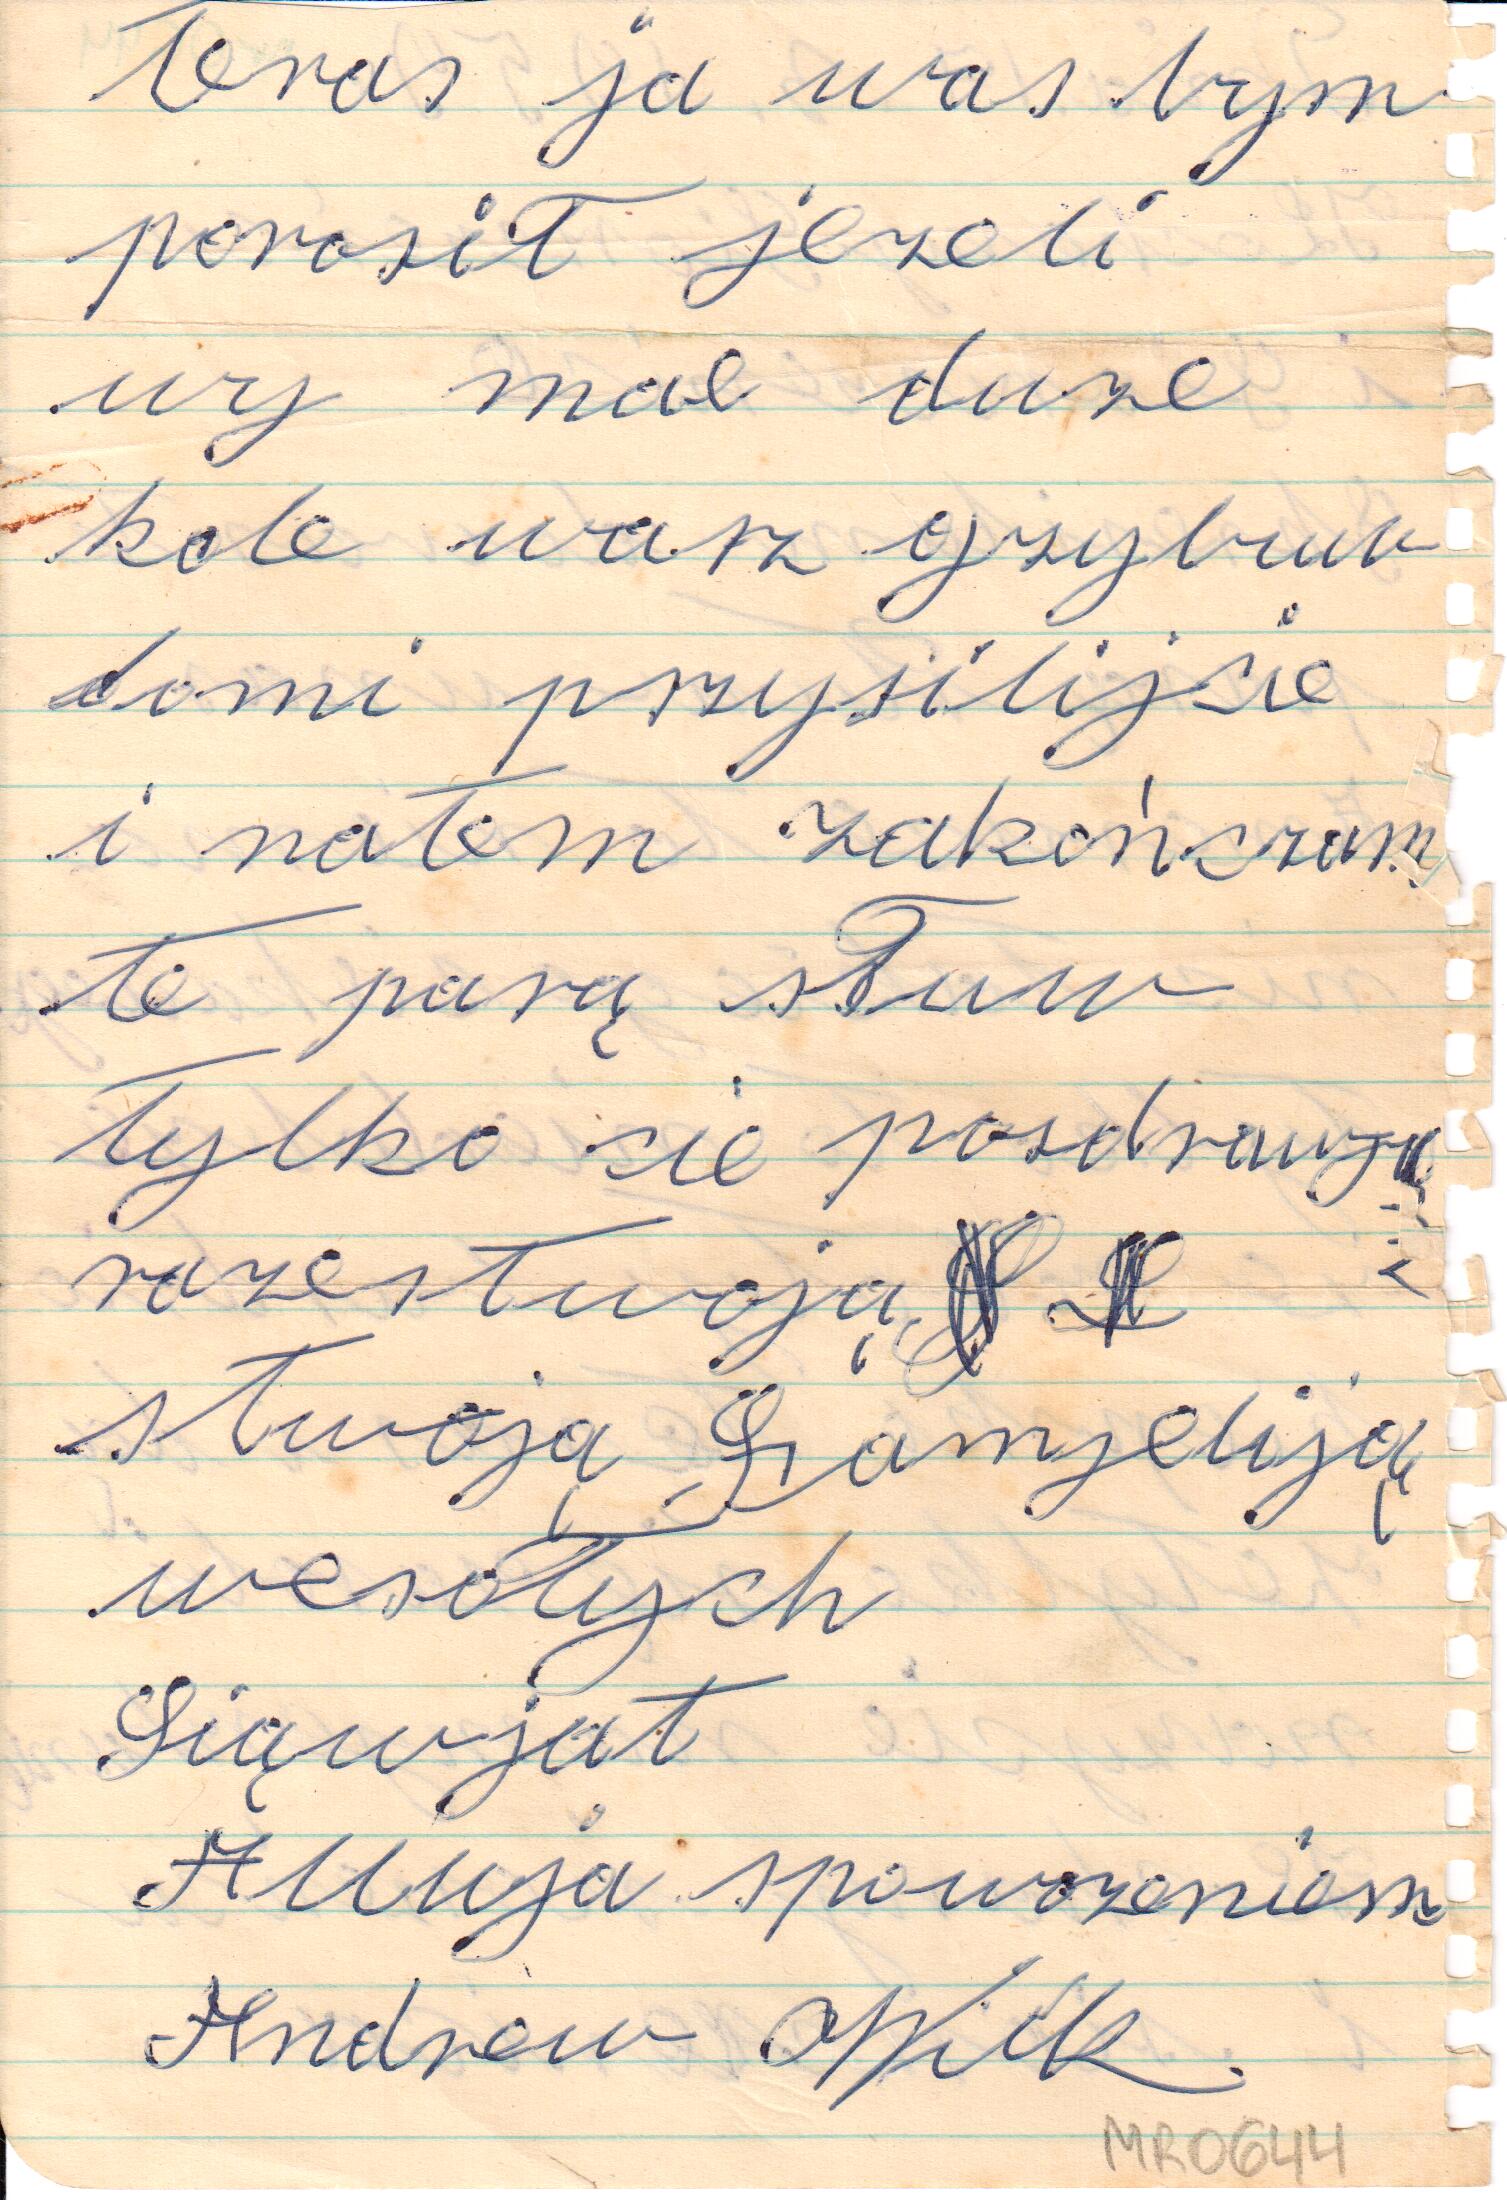 teras ja was bym
porosił jezeli
wy mae duze
kole wasz grzybuw
tomi przysilijcie
i natem zakończam
te parą słuw
tylko cie posdrawja
razestwoją
stwoją Famyeliją
wesołych
Siąwjat
Alluja spowrzeniem
Andrew Wilk.
MR0644